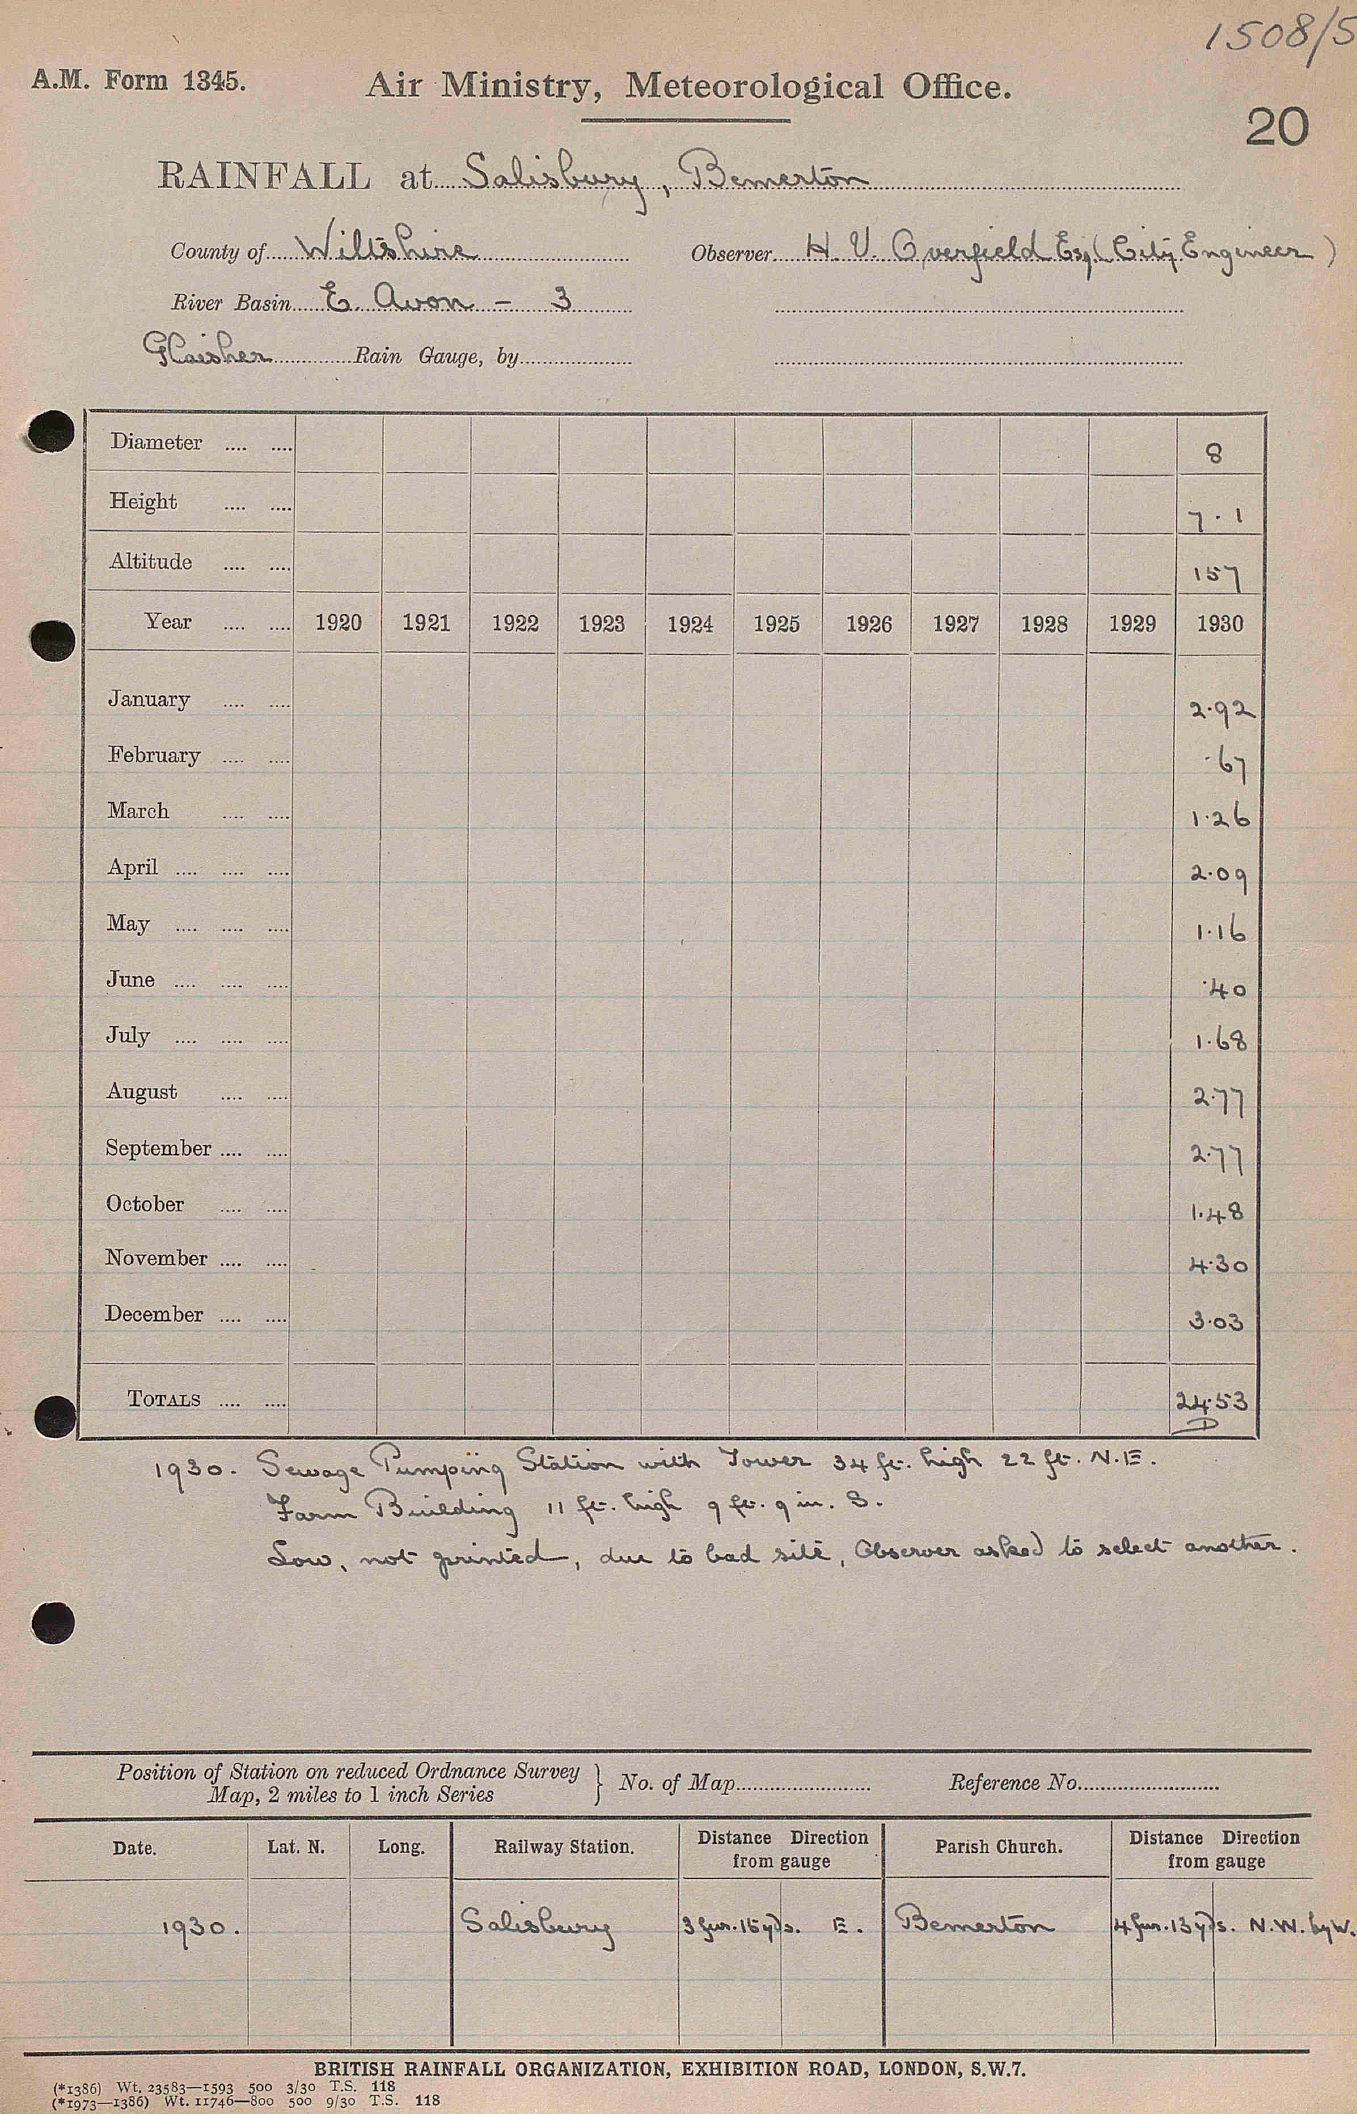 1508/5
A.M. Form 1345. Air Ministry, Meteorological Office.
20
RAINFALL at Salisbury, Bemerton
County of Wiltshire Observer H. V. Overfield Esq. (City Engineer)
River Basin E. Avon - 3
Glaisher Rain Gauge, by
Diameter .... .... 8
Height .... .... 7.1
Altitude .... .... 157
Year .... .... 1920 1921 1922 1923 1924 1925 1926 1927 1928 1929 1930
January .... .... 2.92
February .... .... .67
March .... .... 1.26
April .... .... .... 2.09
May .... .... .... 1.16
June .... .... .... .40
July .... .... .... 1.68
August .... .... 2.77
September .... .... 2.77
October .... .... 1.48
November .... .... 4.30
December .... .... 3.03
TOTALS .... .... 24.53
D
1930. Sewage Pumping Station with Tower 34 ft. high 22 ft. N.E.
Farm Building 11 ft. high 9 ft. 9 in. S.
Low, not printed, due to bad site, Observer asked to select another.
Position of Station on reduced Ordnance Survey
Map, 2 miles to 1 inch Series } No. of Map Reference No.
Date. Lat. N. Long. Railway Station. Distance Direction from gauge Parish Church. Distance Direction from gauge
1930. Salisbury 3 fur. 15 yds. E. Bemerton 4 fur. 13 yds. N.W. by W.
BRITISH RAINFALL ORGANIZATION, EXHIBITION ROAD, LONDON, S.W.7.
(*1386) Wt. 23583—1593 500 3/30 T.S. 118
(*1973—1386) Wt. 11746—800 500 9/30 T.S. 118